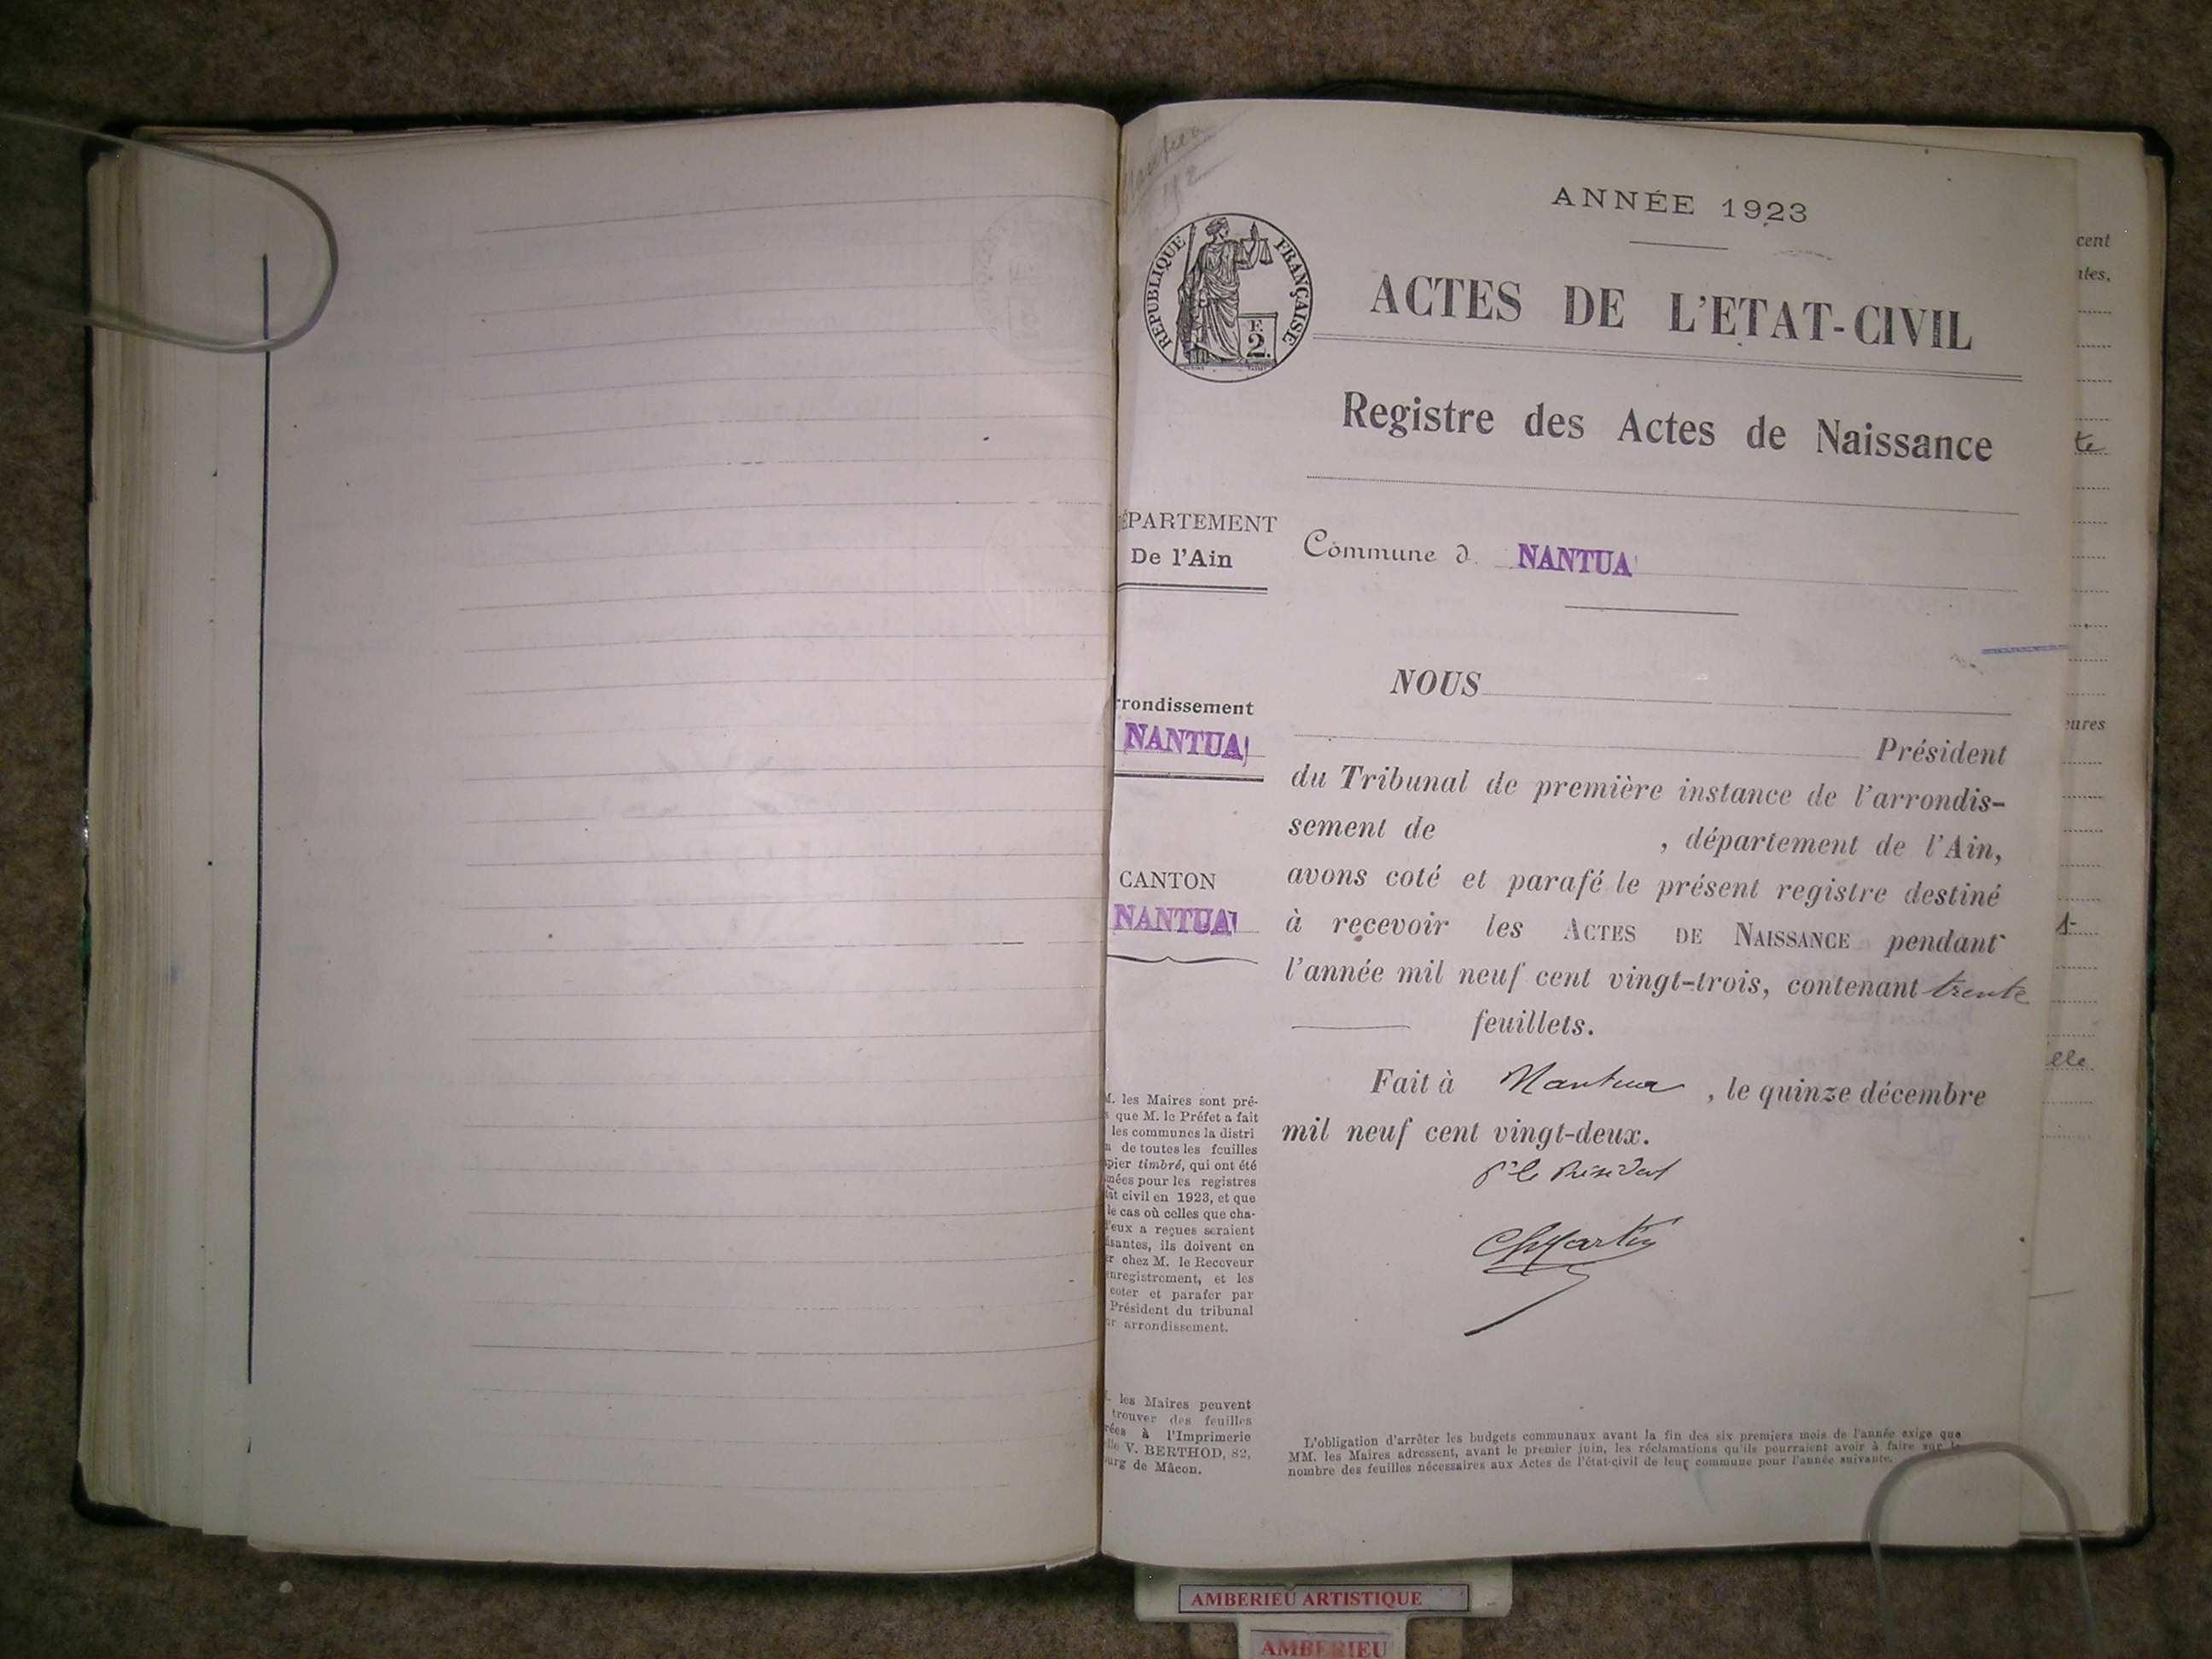 Nantua
ANNÉE 1923
RÉPUBLIQUE FRANÇAISE
F.
2.
ACTES DE L'ETAT-CIVIL
Registre des Actes de Naissance
ÉPARTEMENT
De l'Ain
Commune d NANTUA
rrondissement
NANTUA
CANTON
NANTUA
NOUS
Président
du Tribunal de première instance de l'arrondis-
sement de , département de l'Ain,
avons coté et parafé le présent registre destiné
à recevoir les ACTES DE NAISSANCE pendant
l'année mil neuf cent vingt-trois, contenant trente
feuillets.
Fait à Nantua, le quinze décembre
mil neuf cent vingt-deux.
Pr le Président
M. les Maires sont pré-
s que M. le Préfet a fait
les communes la distri
n de toutes les feuilles
pier timbré, qui ont été
mées pour les registres
tat civil en 1923, et que
le cas où celles que cha-
d'eux a reçues seraient
isantes, ils doivent en
er chez M. le Receveur
enregistrement, et les
coter et parafer par
Président du tribunal
ur arrondissement.
. les Maires peuvent
trouver des feuilles
rées à l'Imprimerie
lle V. BERTHOD, 82,
urg de Mâcon.
L'obligation d'arrêter les budgets communaux avant la fin des six premiers mois de l'année exige que
MM. les Maires adressent, avant le premier juin, les réclamations qu'ils pourraient avoir à faire sur le
nombre des feuilles nécessaires aux Actes de l'état-civil de leur commune pour l'année suivante.
cent
ntes.
te
eures
elle
AMBERIEU ARTISTIQUE
AMBERIEU